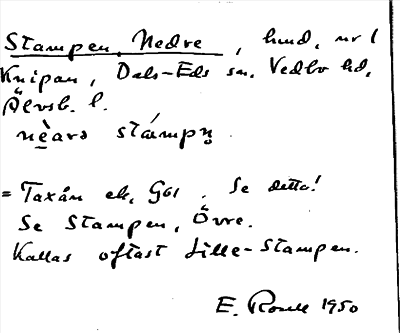 Stampen, Nedre, hmd. nr 1
Knipan, Dals-Eds sn. Vedbo hd,
Älvsb. l.
nèarə stámpn̥.
= Taxån ek, Gös. Se detta!
Se Stampen, Övre.
Kallas oftast Lille-Stampen.
E. 1950